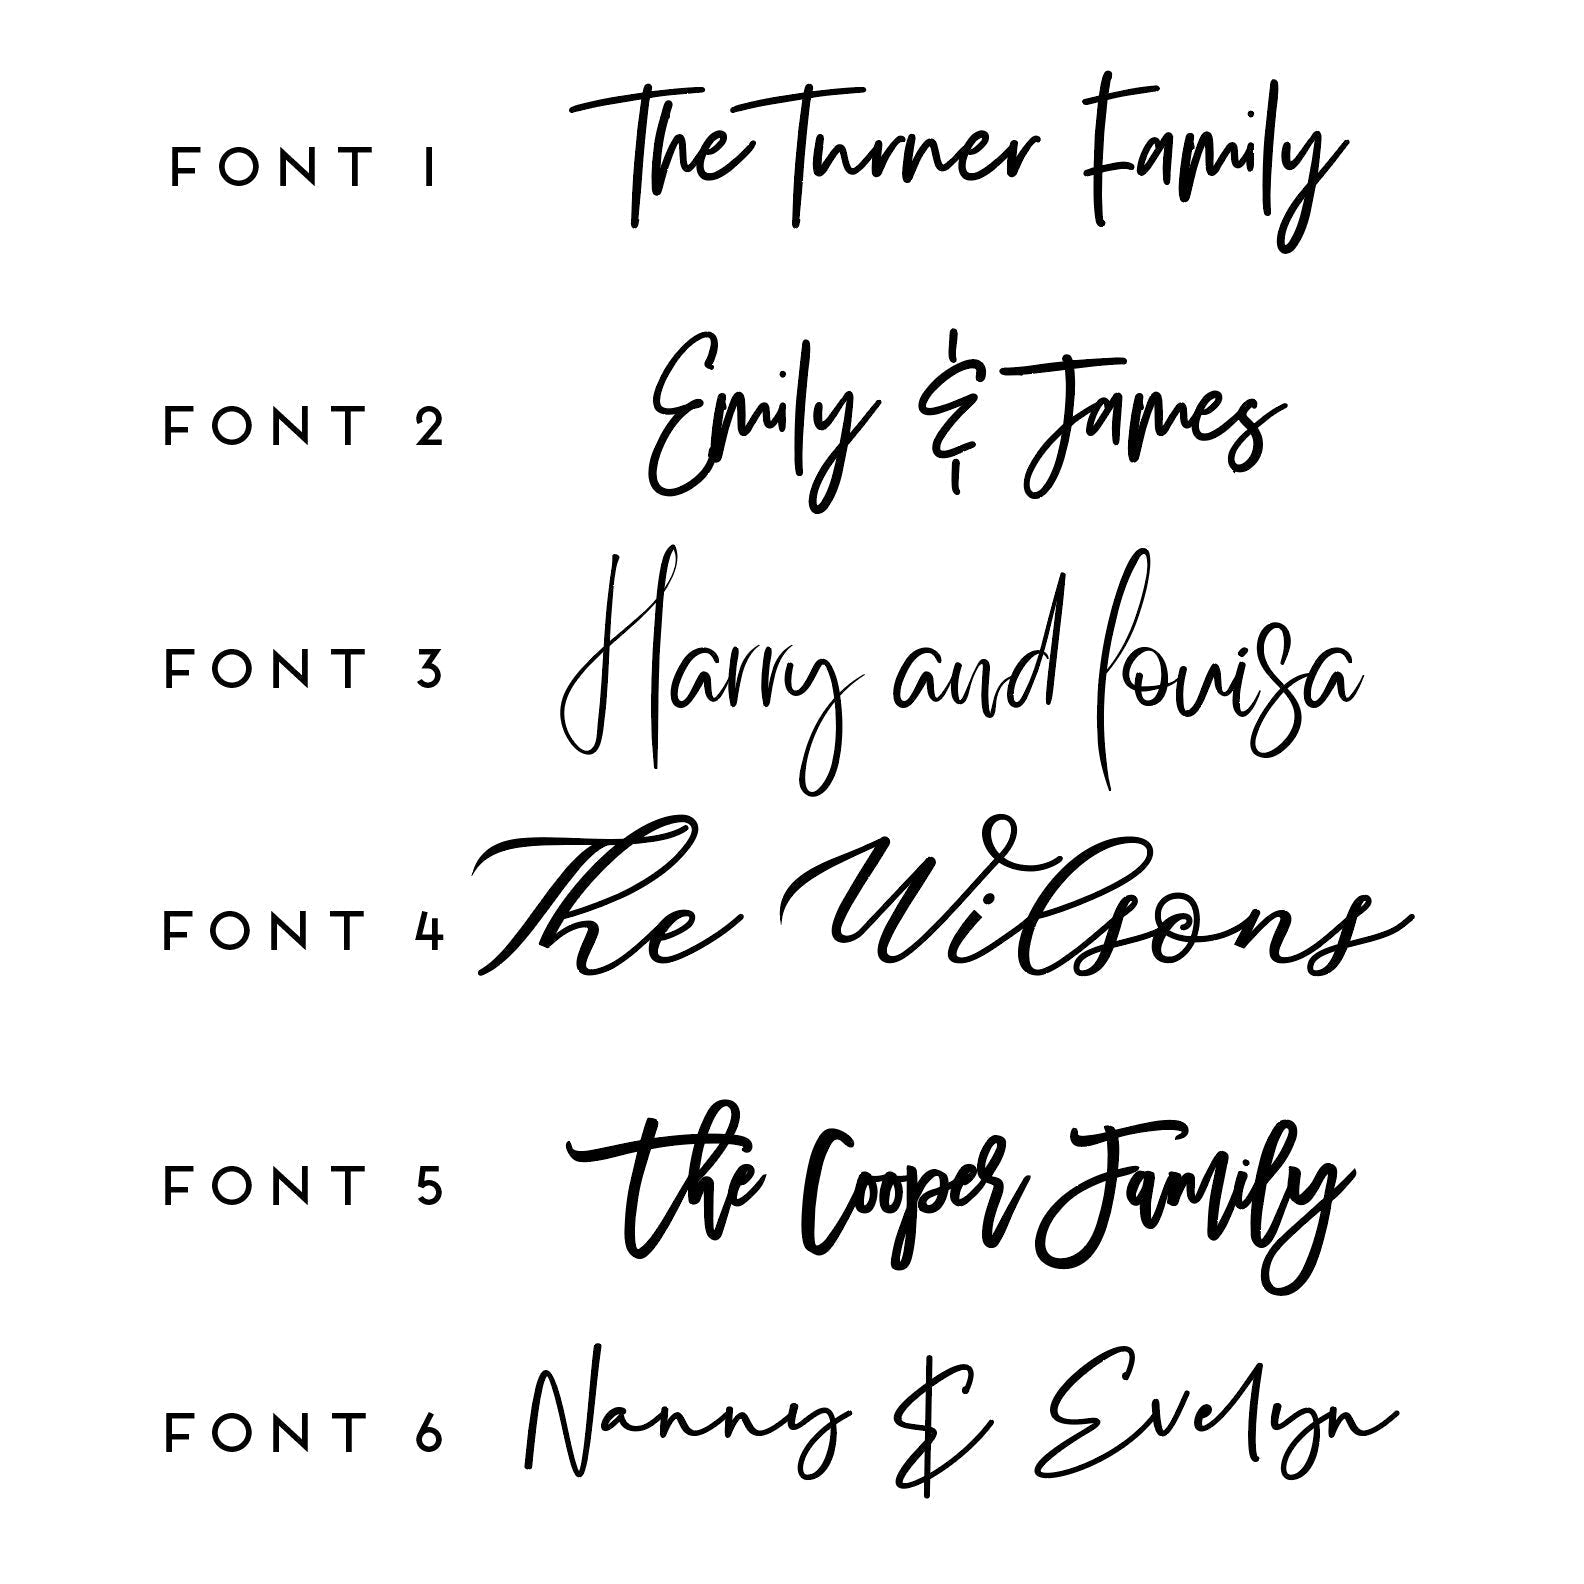 FONT 1 The Turner Family
FONT 2 Emily & James
FONT 3 Harry and louisa
FONT 4 The Wilsons
FONT 5 the Cooper Family
FONT 6 Nanny & Evelyn